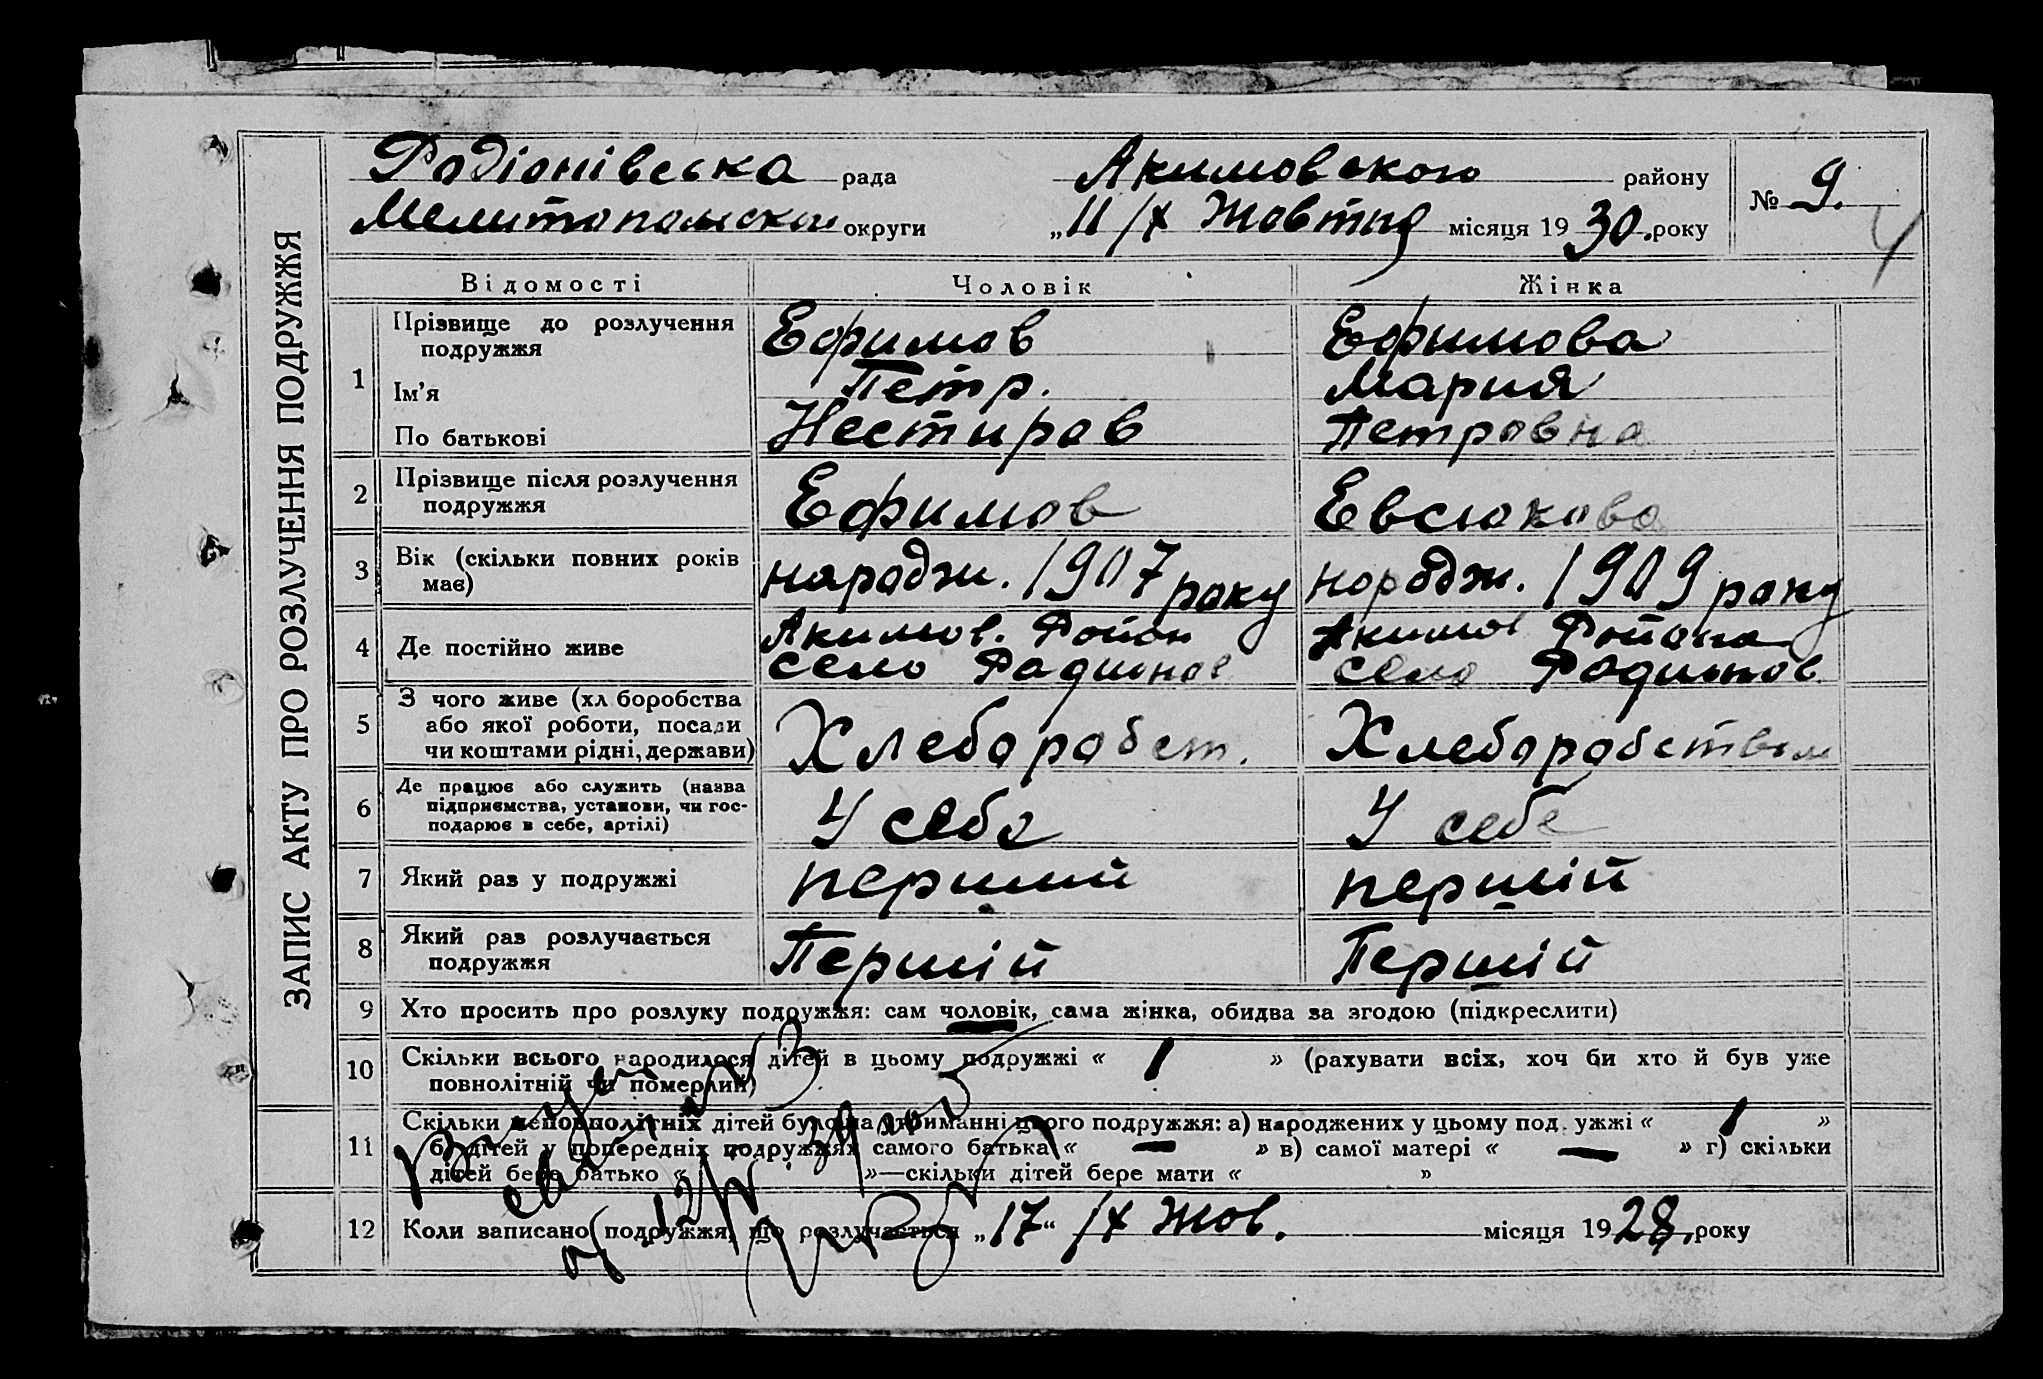 ЗАПИС АКТУ ПРО РОЗЛУЧЕННЯ ПОДРУЖЖЯ
Родіонівська рада Акимовского району № 9.
Мелитопольскои округи „11/X Жовтня місяця 1930. року
4
Відомості Чоловік Жінка
1 Прізвище до розлучення подружжя Ефимов Ефимова
Ім'я Петр. Мария
По батькові Нестиров Петровна
2 Прізвище після розлучення подружжя Ефимов Евсюкова
3 Вік (скільки повних років має) народж. 1907 року народж. 1909 року
4 Де постійно живе Акимов. Район Акимов Района
село Радионов село Родионов
5 З чого живе (хл боробства або якої роботи, посади чи коштами рідні, держави) Хлеборобст. Хлеборобством
6 Де працює або служить (назва підприємства, установи, чи господарює в себе, артілі) У себе У себе
7 Який раз у подружжі перший першій
8 Який раз розлучається подружжя Першій Першій
9 Хто просить про розлуку подружжя: сам чоловік, сама жінка, обидва за згодою (підкреслити)
10 Скільки всього народилося дітей в цьому подружжі « 1 » (рахувати всіх, хоч би хто й був уже
повнолітній чи померлий)
11 Скільки неповнолітніх дітей було на утриманні цього подружжя: а) народжених у цьому под. ужжі « 1 »
б) дітей у попередніх подружжях самого батька « — » в) самої матері « — » г) скільки
дітей бере батько « »—скільки дітей бере мати « »
12 Коли записано подружжя, що розлучається „17“ /X Жов. місяця 1928. року